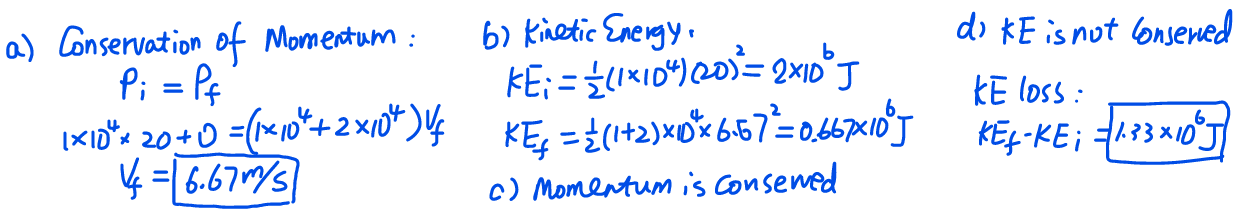 a) Conservation of Momentum :
Pi = Pf
1×10⁴× 20 + 0 = (1×10⁴ + 2×10⁴) Vf
Vf = 6.67 m/s
b) Kinetic Energy.
KEi = ½(1×10⁴)(20)² = 2×10⁶ J
KEf = ½(1+2)×10⁴×6.67² = 0.667×10⁶ J
c) Momentum is conserved
d) KE is not conserved
KE loss :
KEf - KEi = 1.33 ×10⁶ J